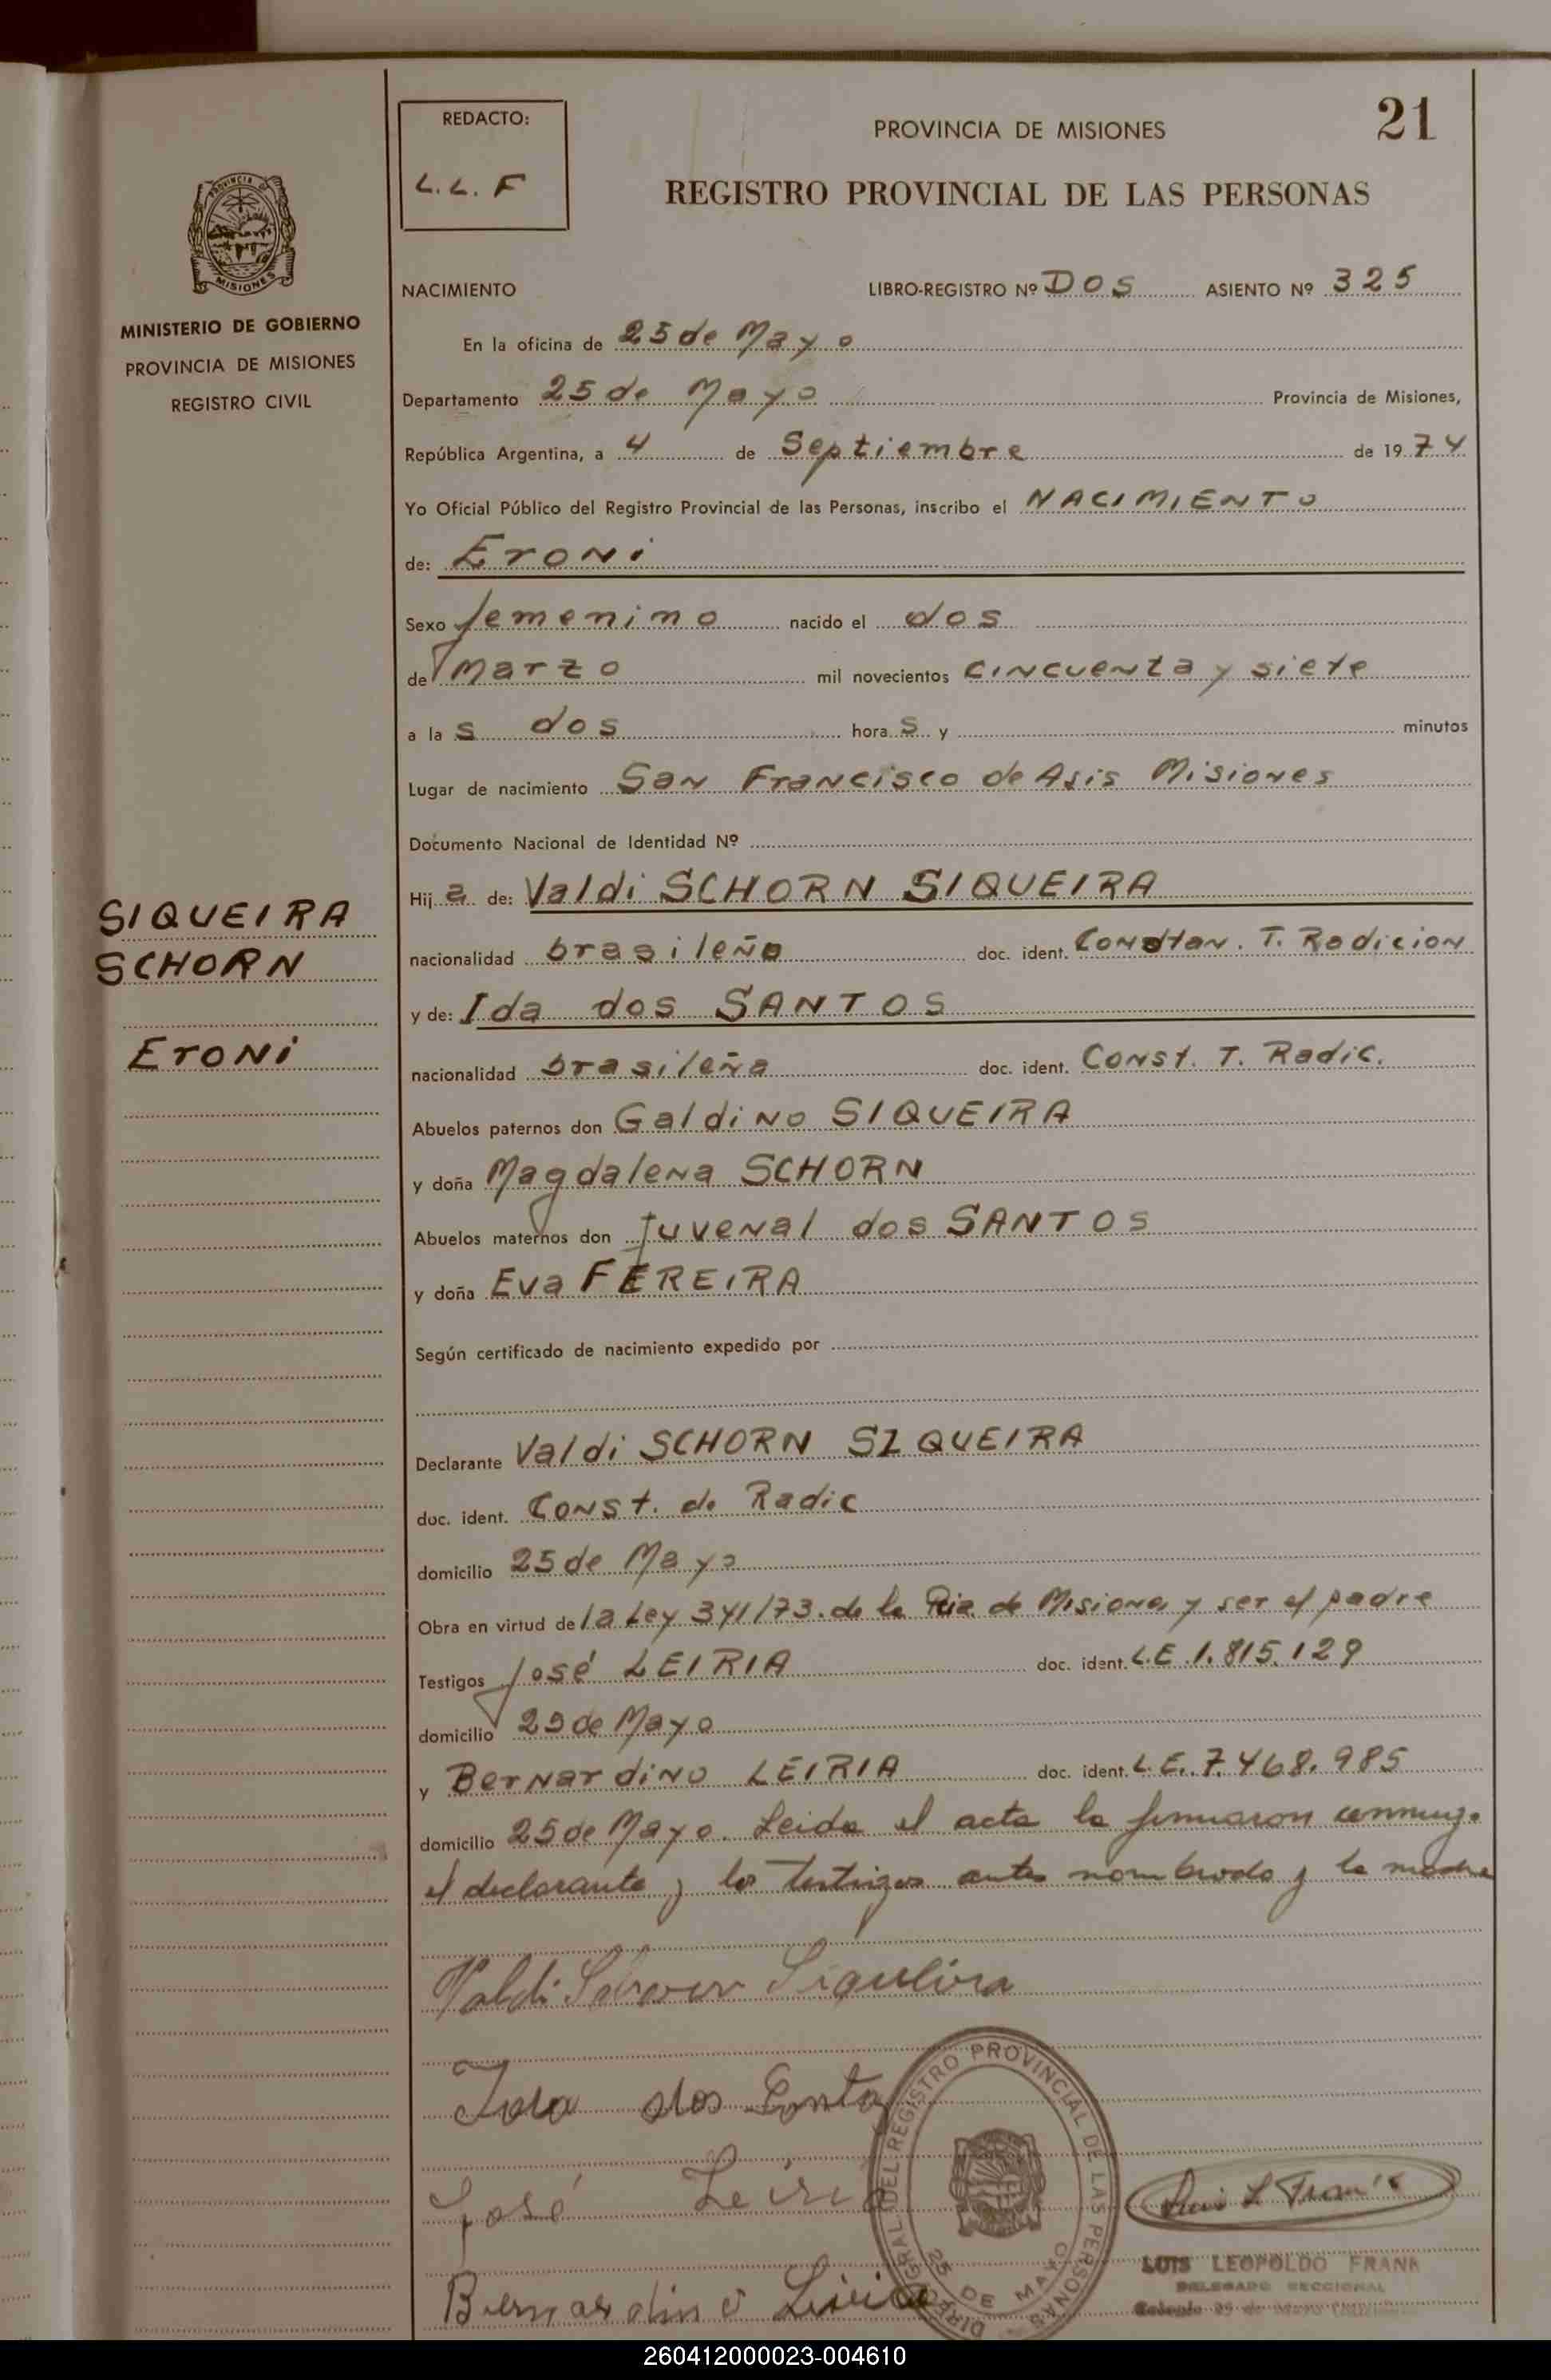 21
REDACTO:
L. L. F
PROVINCIA DE MISIONES
REGISTRO PROVINCIAL DE LAS PERSONAS
PROVINCIA DE
MISIONES
MINISTERIO DE GOBIERNO
PROVINCIA DE MISIONES
REGISTRO CIVIL
NACIMIENTO LIBRO-REGISTRO Nº DOS ASIENTO Nº 325
En la oficina de 25 de Mayo
Departamento 25 de Mayo Provincia de Misiones,
República Argentina, a 4 de Septiembre de 1974
Yo Oficial Público del Registro Provincial de las Personas, inscribo el NACIMIENTO
de: Eroni
Sexo femenino nacido el dos
de Marzo mil novecientos cincuenta y siete
a las dos horas y minutos
Lugar de nacimiento San Francisco de Asis Misiones
Documento Nacional de Identidad Nº
Hija de: Valdi SCHORN SIQUEIRA
SIQUEIRA
SCHORN
Eroni
nacionalidad brasileño doc. ident. Constan. T. Radicion
y de: Ida dos SANTOS
nacionalidad brasileña doc. ident. Const. T. Radic.
Abuelos paternos don Galdino SIQUEIRA
y doña Magdalena SCHORN
Abuelos maternos don Juvenal dos SANTOS
y doña Eva FEREIRA
Según certificado de nacimiento expedido por
Declarante Valdi SCHORN SIQUEIRA
doc. ident. Const. de Radic
domicilio 25 de Mayo
Obra en virtud de la Ley 341/73. de la Pcia de Misiones y ser el padre
Testigos José LEIRIA doc. ident. L.E. 1.815.129
domicilio 25 de Mayo
y Bernardino LEIRIA doc. ident. L.E. 7.468.985
domicilio 25 de Mayo. Leida el acta la firmaron conmigo
el declarante y los testigos antes nombrado y la madre
Valdi Schorn Siqueira
Ida dos Santos
José Leiria
Bernardino Leiria
DIRECCION GENERAL DEL REGISTRO PROVINCIAL DE LAS PERSONAS
25 DE MAYO
LUIS LEOPOLDO FRANK
DELEGADO SECCIONAL
260412000023-004610